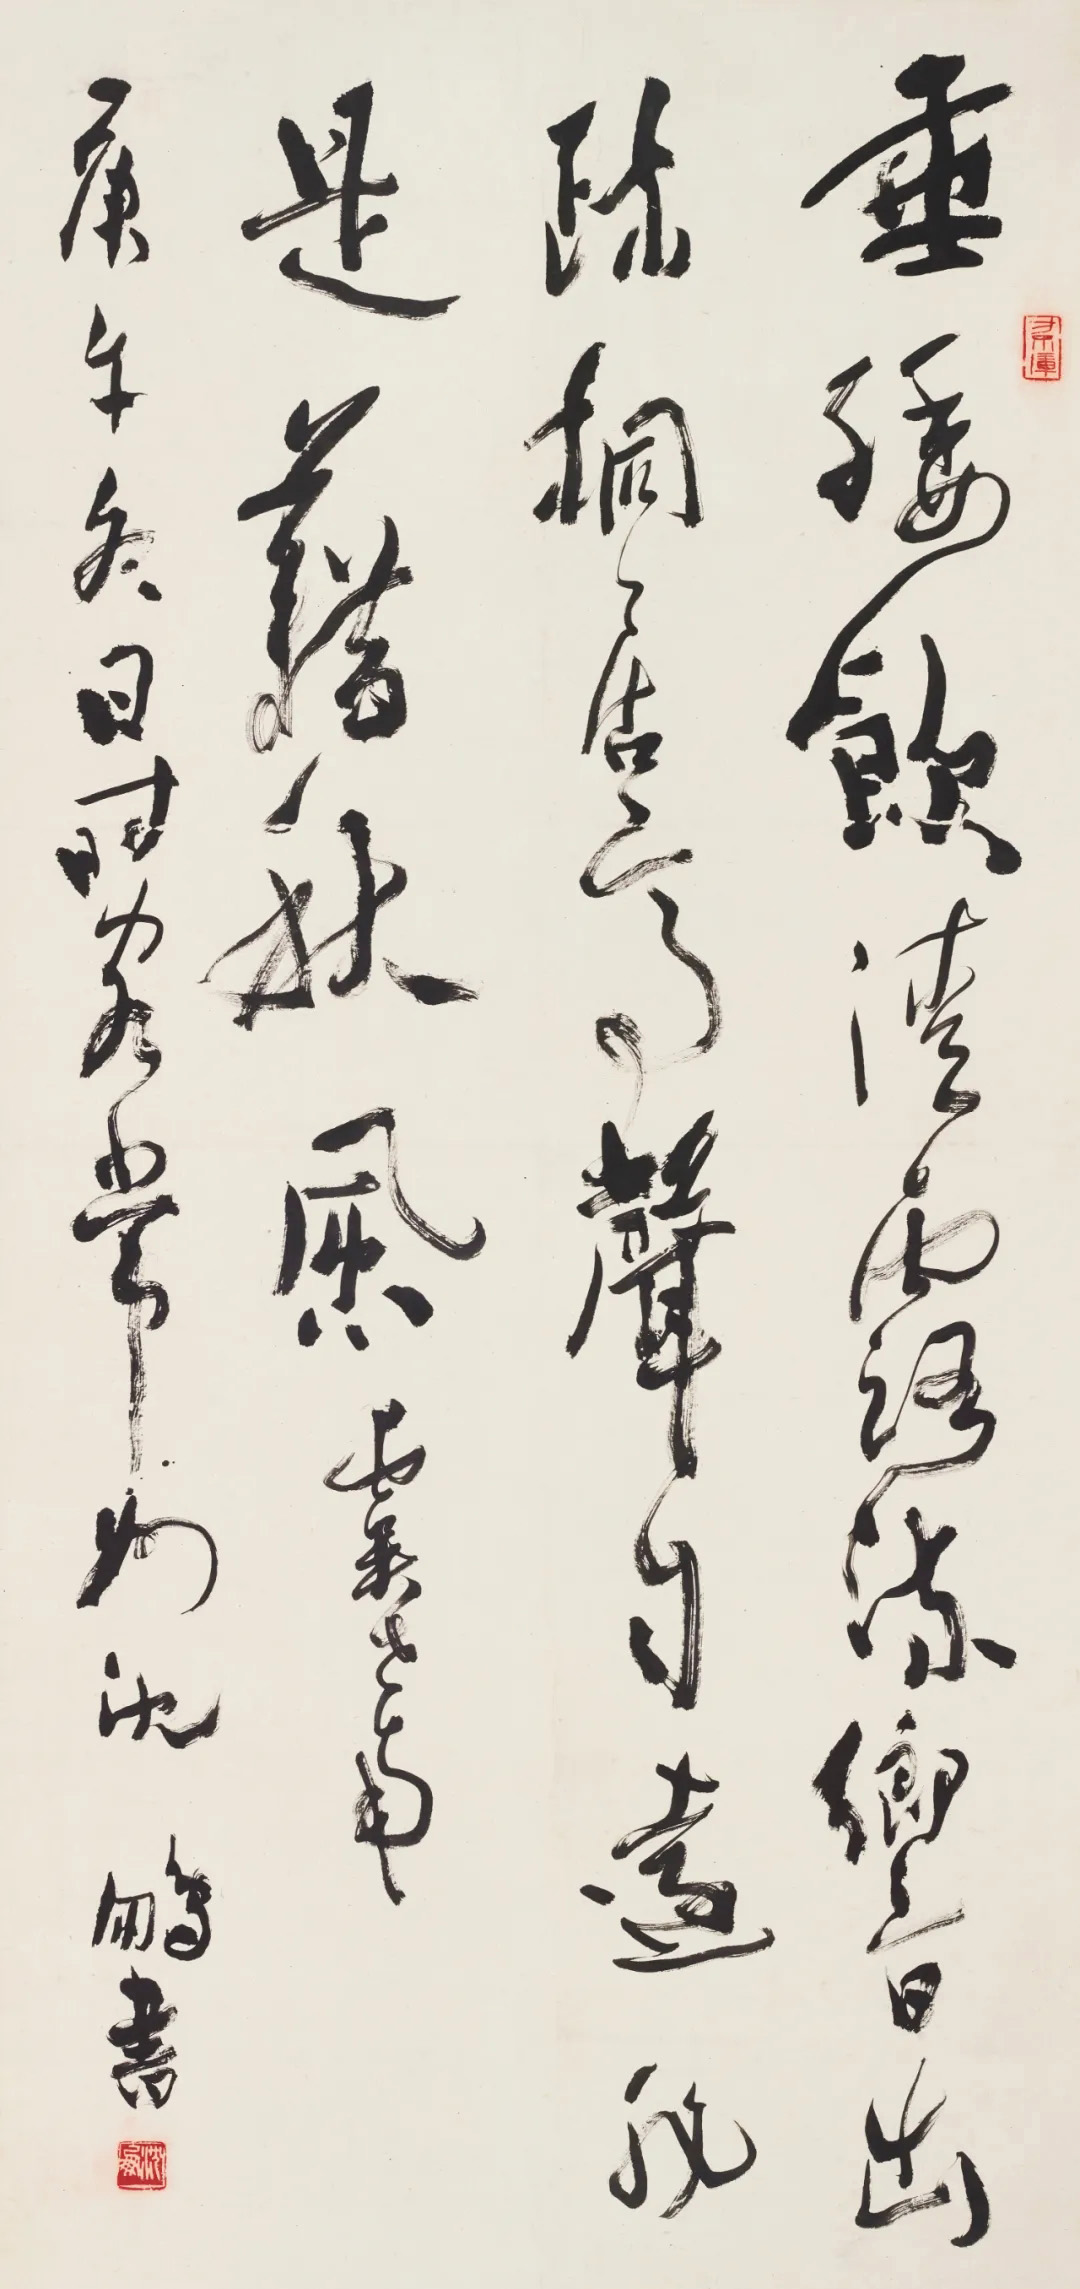 垂緌飲清露流響出
疏桐居高聲自遠非
是藉秋風 虞世南
庚午冬日時客常州沈鵬書